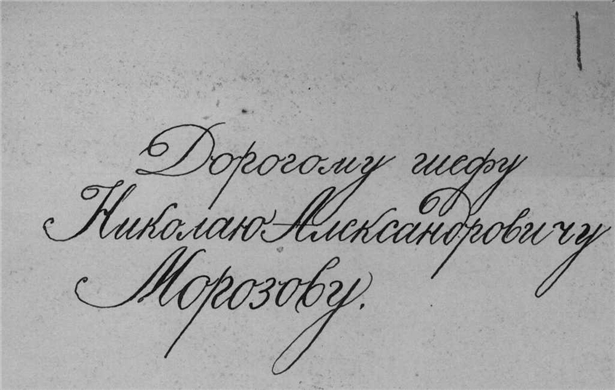 Дорогому шефу
Николаю Александровичу
Морозову.